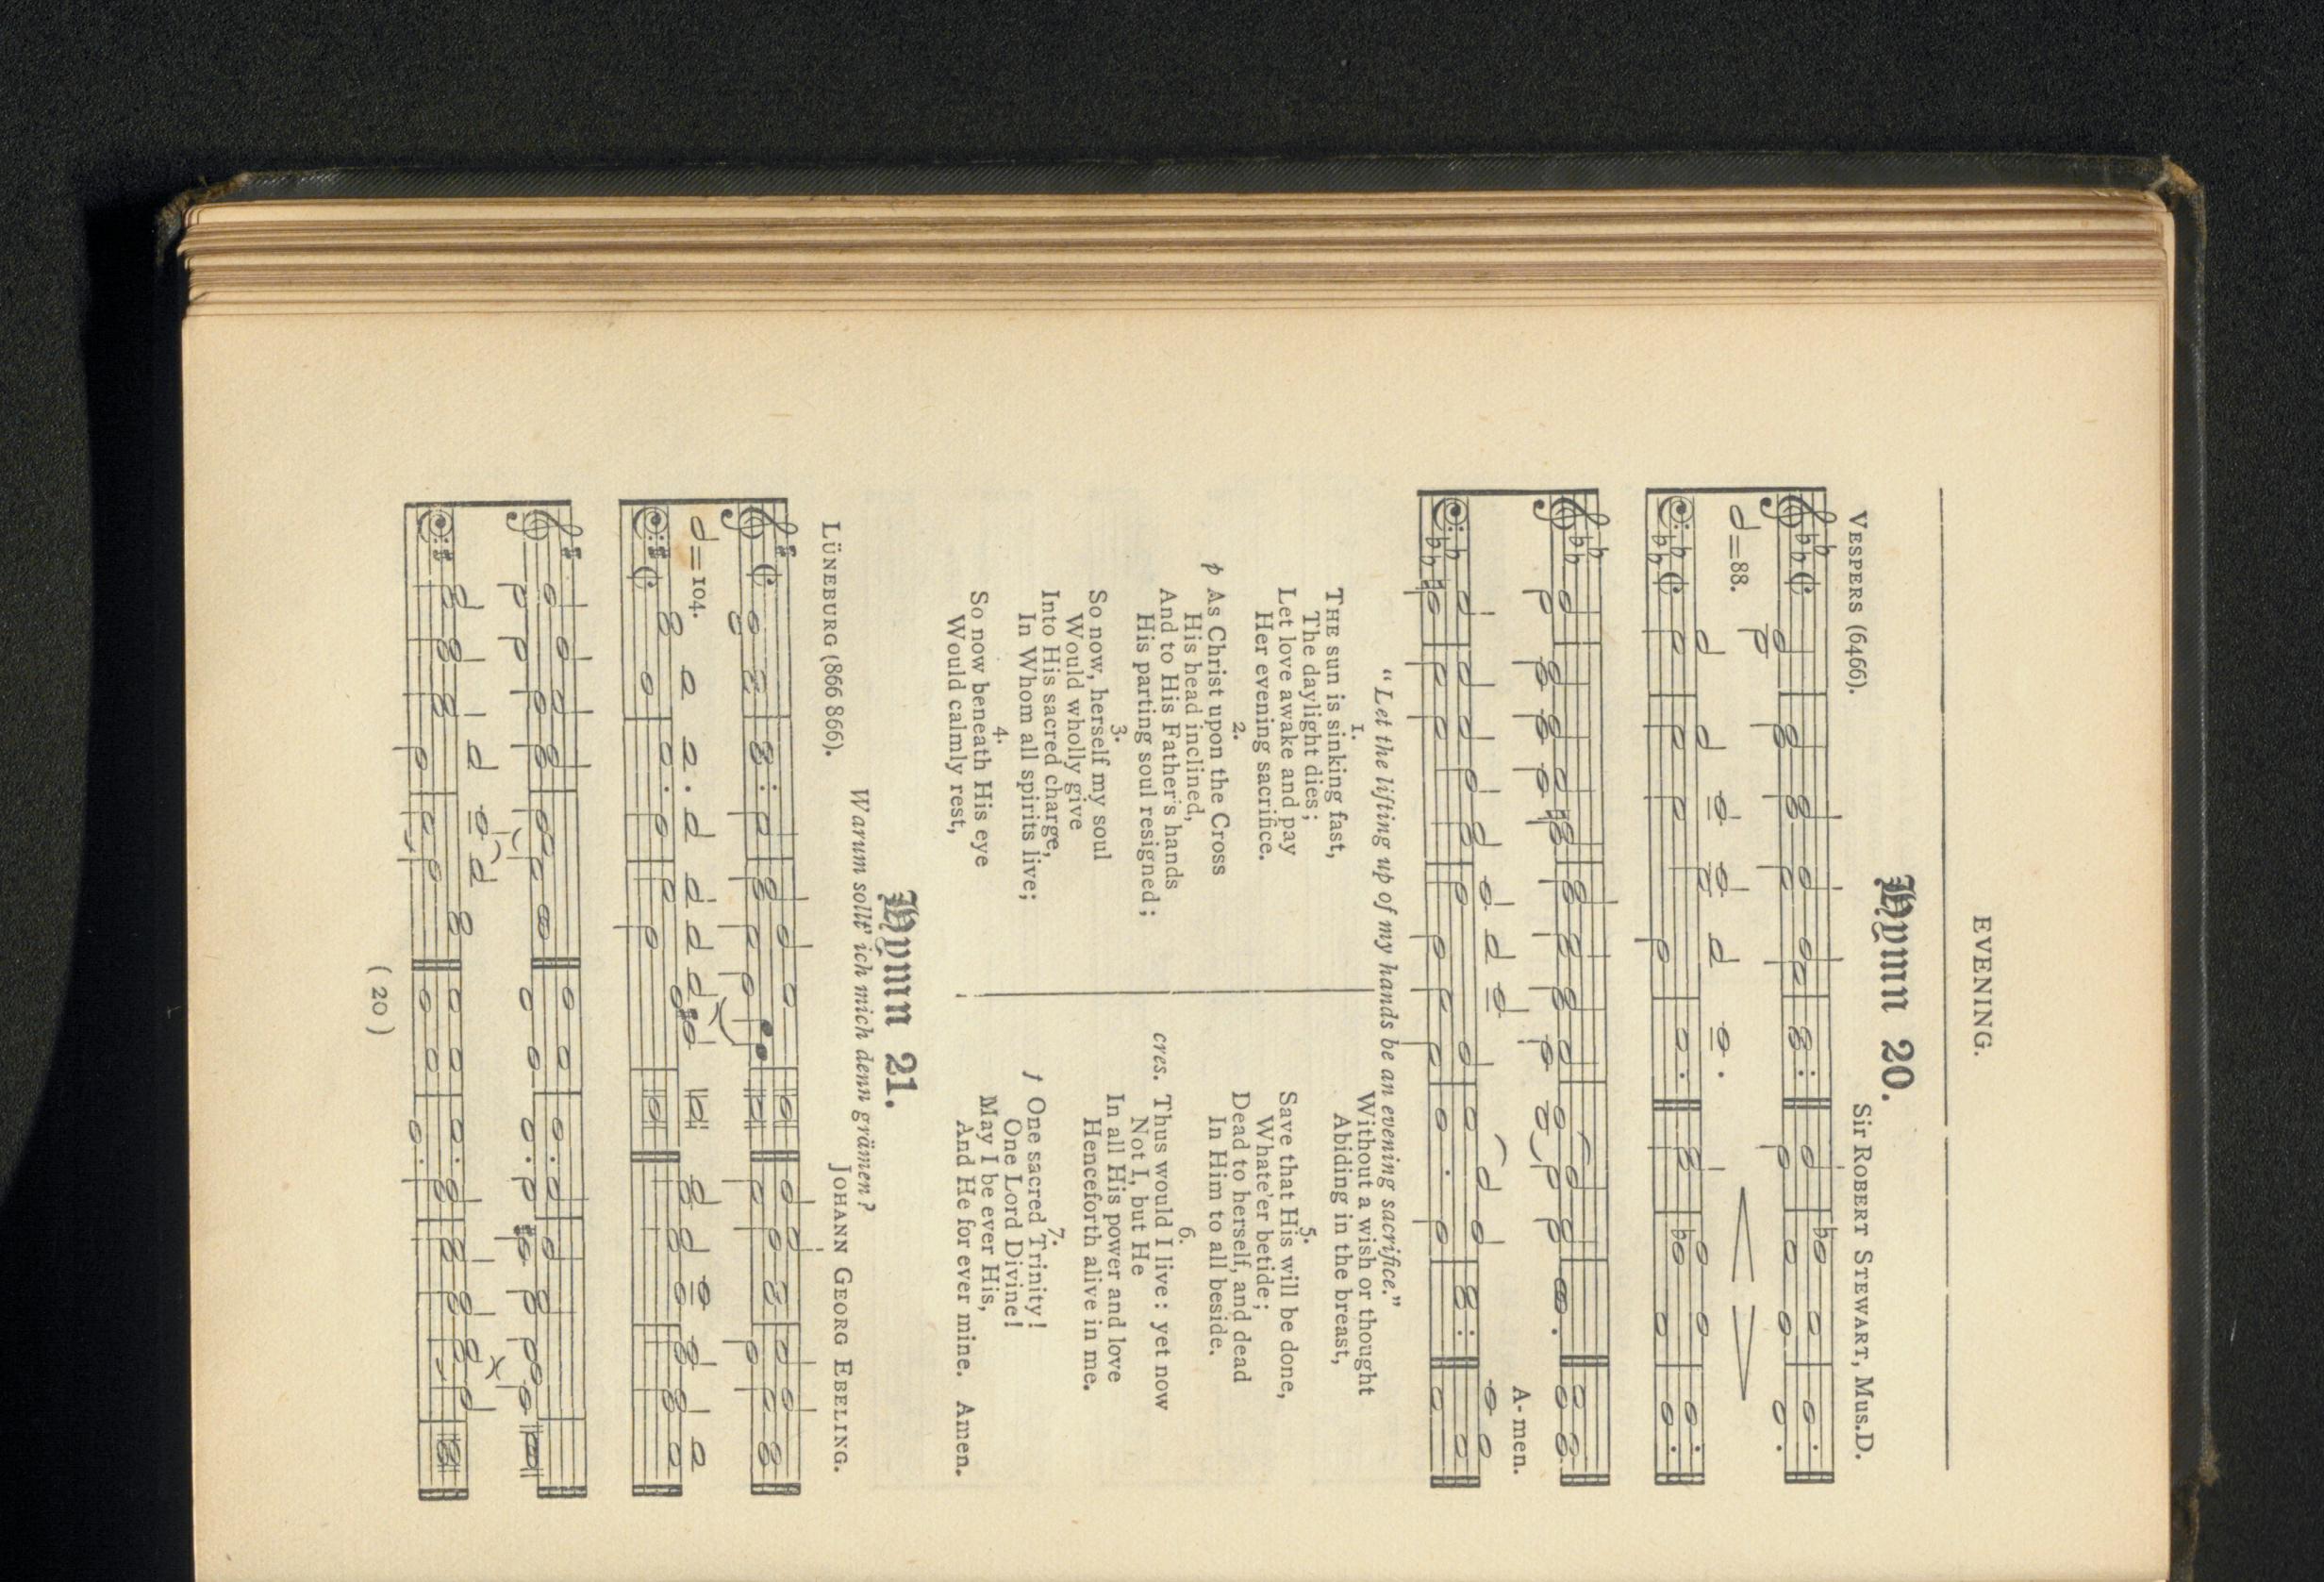 EVENING.
Hymn 20.
VESPERS (6466).
Sir ROBERT STEWART, Mus.D.
=88.
A-men.
"Let the lifting up of my hands be an evening sacrifice."
1.
THE sun is sinking fast,
The daylight dies;
Let love awake and pay
Her evening sacrifice.
2.
p As Christ upon the Cross
His head inclined,
And to His Father's hands
His parting soul resigned;
3.
So now, herself my soul
Would wholly give
Into His sacred charge,
In Whom all spirits live;
4.
So now beneath His eye
Would calmly rest,
Without a wish or thought
Abiding in the breast,
5.
Save that His will be done,
Whate'er betide;
Dead to herself, and dead
In Him to all beside.
6.
cres. Thus would I live: yet now
Not I, but He
In all His power and love
Henceforth alive in me.
7.
f One sacred Trinity!
One Lord Divine!
May I be ever His,
And He for ever mine. Amen.
Hymn 21.
Warum sollt' ich mich denn grämen?
LÜNEBURG (866 866).
JOHANN GEORG EBELING.
=104.
( 20 )